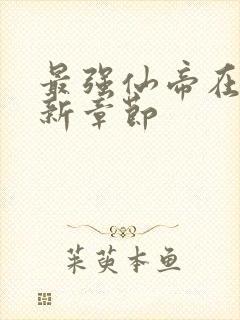 最强仙帝在
新章节
茱萸本鱼